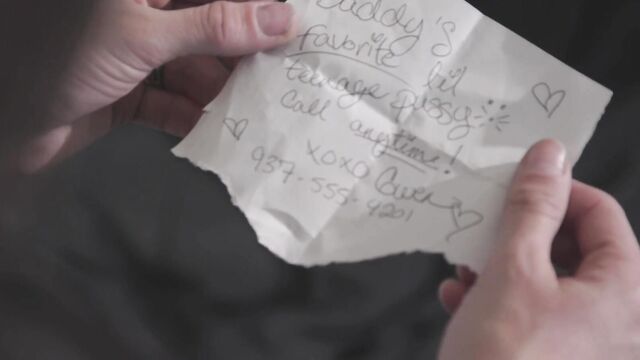 Daddy's
favorite lil
teenage pussy
Call anytime!
xoxo
937-555-4201